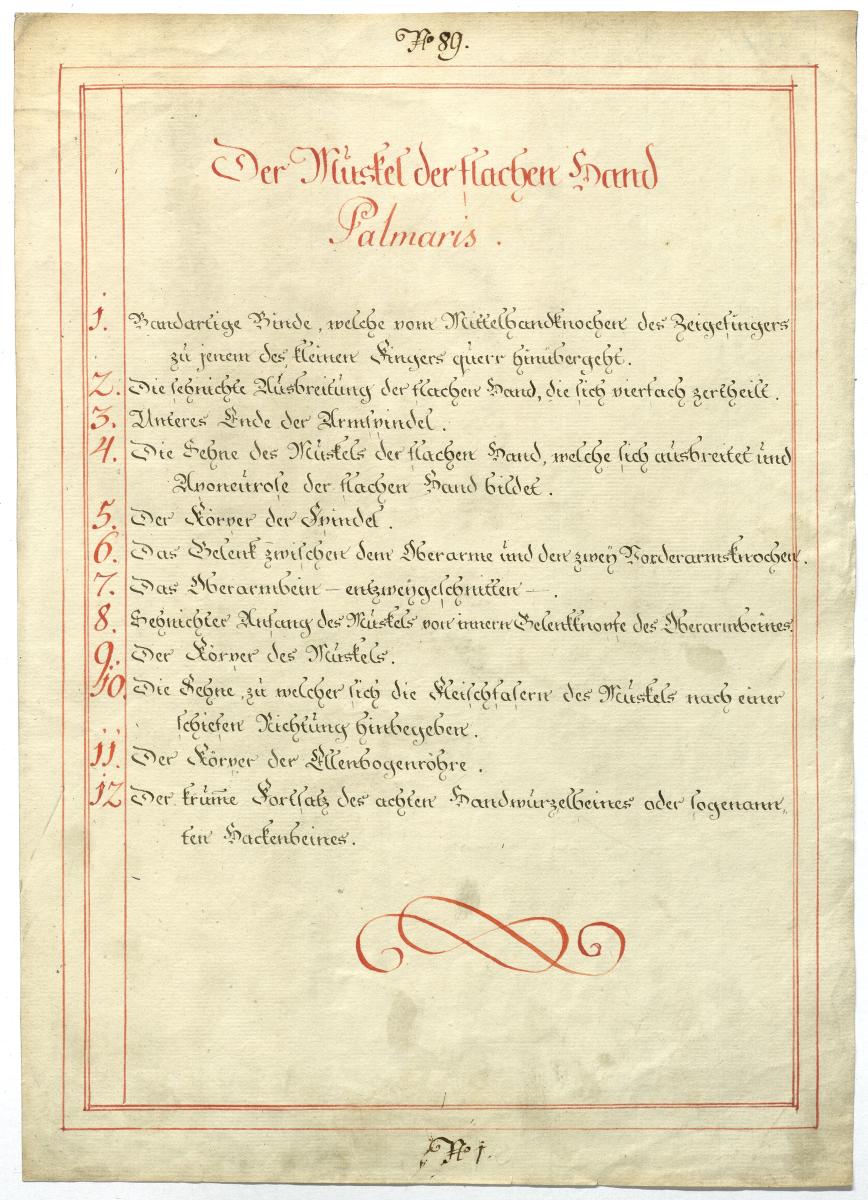 No 89.
Der Muskel der flachen Hand
Palmaris.
1. Bandartige Binde, welche vom Mittelhandknochen des Zeigefingers
zu jenem des kleinen Fingers querr hinübergeht.
2. Die sehnichte Ausbreitung der flachen Hand, die sich vierfach zertheilt.
3. Unteres Ende der Armspindel.
4. Die Sehne des Muskels der flachen Hand, welche sich ausbreitet und
Aponeurose der flachen Hand bildet.
5. Der Körper der Spindel.
6. Das Gelenk zwischen dem Oberarme und den zwey Vorderarmsknochen.
7. Das Oberarmbein – entzweygeschnitten –.
8. Sehnichter Anfang des Muskels von innern Gelenkknopfe des Oberarmbeines.
9. Der Körper des Muskels.
10. Die Sehne, zu welcher sich die Fleischfasern des Muskels nach einer
schiefen Richtung hinbegeben.
11. Der Körper der Ellenbogenröhre.
12 Der krum̅e Fortsatz des achten Handwurzelbeines oder sogenann„
ten Hackenbeines.
No 1.